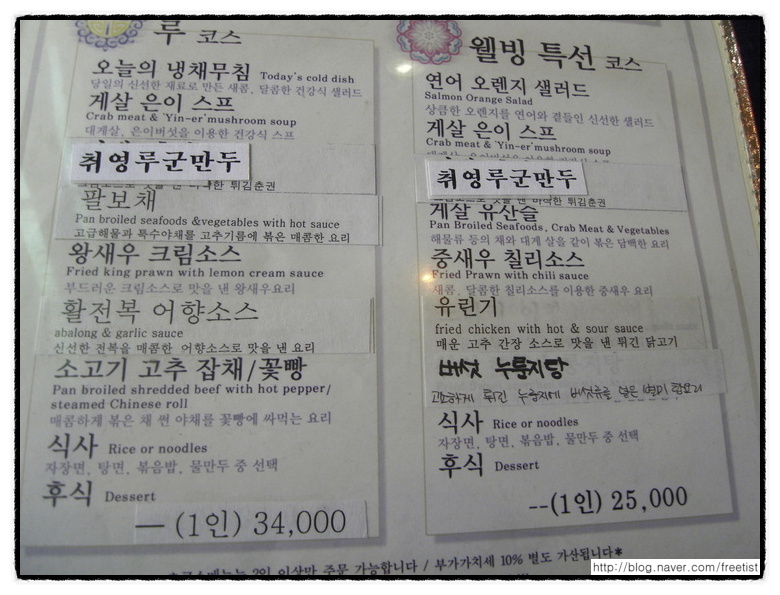 루 코스
오늘의 냉채무침 Today's cold dish
당일의 신선한 재료로 만든 새콤, 달콤한 건강식 샐러드
게살 은이 스프
Crab meat & 'Yin-er'mushroom soup
대게살, 은이버섯을 이용한 건강식 스프
취영루군만두
튀김춘권
팔보채
Pan broiled seafoods &vegetables with hot sauce
고급해물과 특수야채를 고추기름에 볶은 매콤한 요리
왕새우 크림소스
Fried king prawn with lemon cream sauce
부드러운 크림소스로 맛을 낸 왕새우요리
활전복 어향소스
abalong & garlic sauce
신선한 전복을 매콤한 어향소스로 맛을 낸 요리
소고기 고추 잡채/꽃빵
Pan broiled shredded beef with hot pepper/
steamed Chinese roll
매콤하게 볶은 채 썬 야채를 꽃빵에 싸먹는 요리
식사 Rice or noodles
자장면, 탕면, 볶음밥, 물만두 중 선택
후식 Dessert
— (1인) 34,000
웰빙 특선 코스
연어 오렌지 샐러드
Salmon Orange Salad
상큼한 오렌지를 연어와 곁들인 신선한 샐러드
게살 은이 스프
Crab meat & 'Yin-er'mushroom soup
취영루군만두
튀김춘권
게살 유산슬
Pan Broiled Seafoods, Crab Meat & Vegetables
해물류 등의 채와 대게 살을 같이 볶은 담백한 요리
중새우 칠리소스
Fried Prawn with chili sauce
새콤, 달콤한 칠리소스를 이용한 중새우 요리
유린기
fried chicken with hot & sour sauce
매운 고추 간장 소스로 맛을 낸 튀긴 닭고기
버섯 누룽지탕
고소하게 튀긴 누룽지에 버섯류를 넣은 별미 탕요리
식사 Rice or noodles
자장면, 탕면, 볶음밥, 물만두 중 선택
후식 Dessert
--(1인) 25,000
2인 이상만 주문 가능합니다 / 부가가치세 10% 별도 가산됩니다*
http://blog.naver.com/freetist